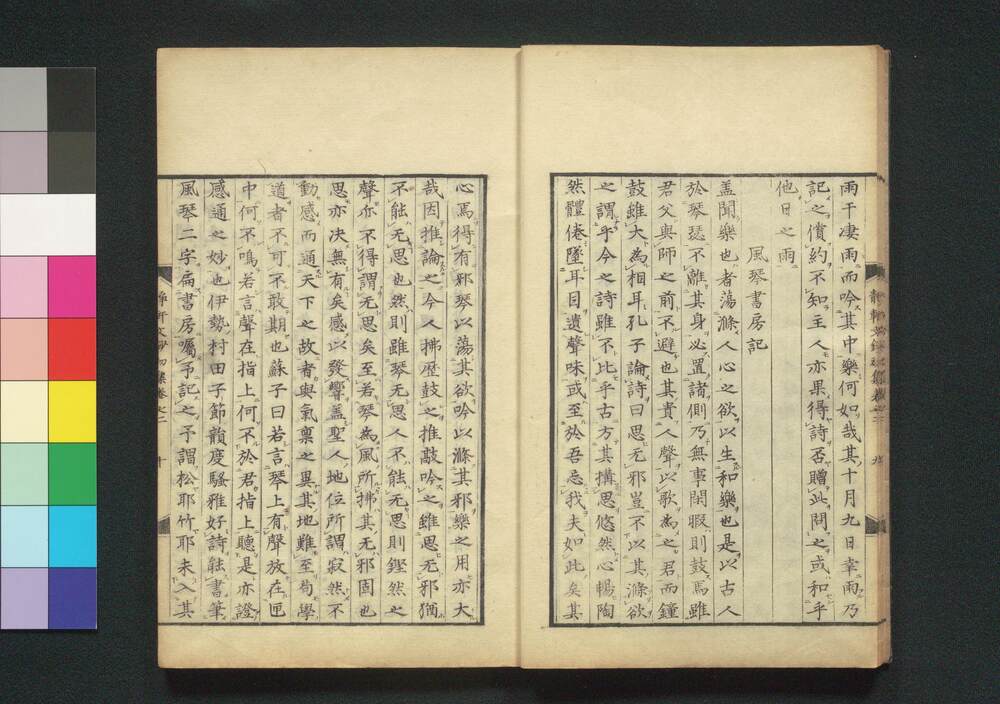 雨干凄雨而吟其中樂何如哉其十月九日幸雨乃
記之償約不知主人亦果得詩否贈此問之或和乎
他日之雨
風琴書房記
盖聞樂也者蕩滌人心之欲以生和樂也是以古人
於琴瑟不離其身必置諸側乃無事閑暇則鼓焉雖
君父與師之前不避也其貴人聲以歌為之君而鐘
鼓雖大為相耳孔子論詩曰思无邪豈不以其滌欲
之謂乎今之詩雖不比乎古方其搆思悠然心暢陶
然體倦墮耳目遺聲味或至於吾忘我夫如此矣其
九
心焉得有邪琴以蕩其欲吟以滌其邪樂之用亦大
哉因推論之今人拂歴鼓之推敲吟之雖思无邪猶
不能无思也然則雖琴无思人不能无思則鏗然之
聲亦不得謂无思矣至若琴為風所拂其无邪固也
思亦决無有矣感以發響盖聖人地位所謂寂然不
動感而通天下之故者與氣稟之異其地難至苟學
道者不可不敢期也蘇子曰若言琴上有聲放在匣
中何不鳴若言聲在指上何不於君指上聽是亦證
感通之妙也伊勢村田子節韻度騒雅好詩能書筆
風琴二字扁書房囑予記之予謂松耶竹耶未入其
靜軒文鈔初集卷之二
十